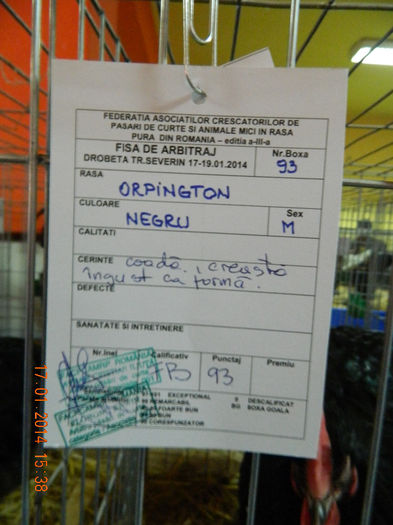 FEDERATIA ASOCIATIILOR CRESCATORILOR DE
PASARI DE CURTE SI ANIMALE MICI IN RASA
PURA DIN ROMANIA – editia a-III-a
FISA DE ARBITRAJ
DROBETA TR.SEVERIN 17-19.01.2014
Nr.Boxa
93
RASA
ORPINGTON
CULOARE
NEGRU
Sex
M
CALITATI
CERINTE coadă, creastă
îngust ca formă.
DEFECTE
SANATATE SI INTRETINERE
Nr.Inel
Calificativ
FB
Punctaj
93
Premiu
EXCEPTIONAL
REMARCABIL
FOARTE BUN
BUN
CORESPUNZATOR
0 DESCALIFICAT
BG BOXA GOALA
17.01.2014 15:38